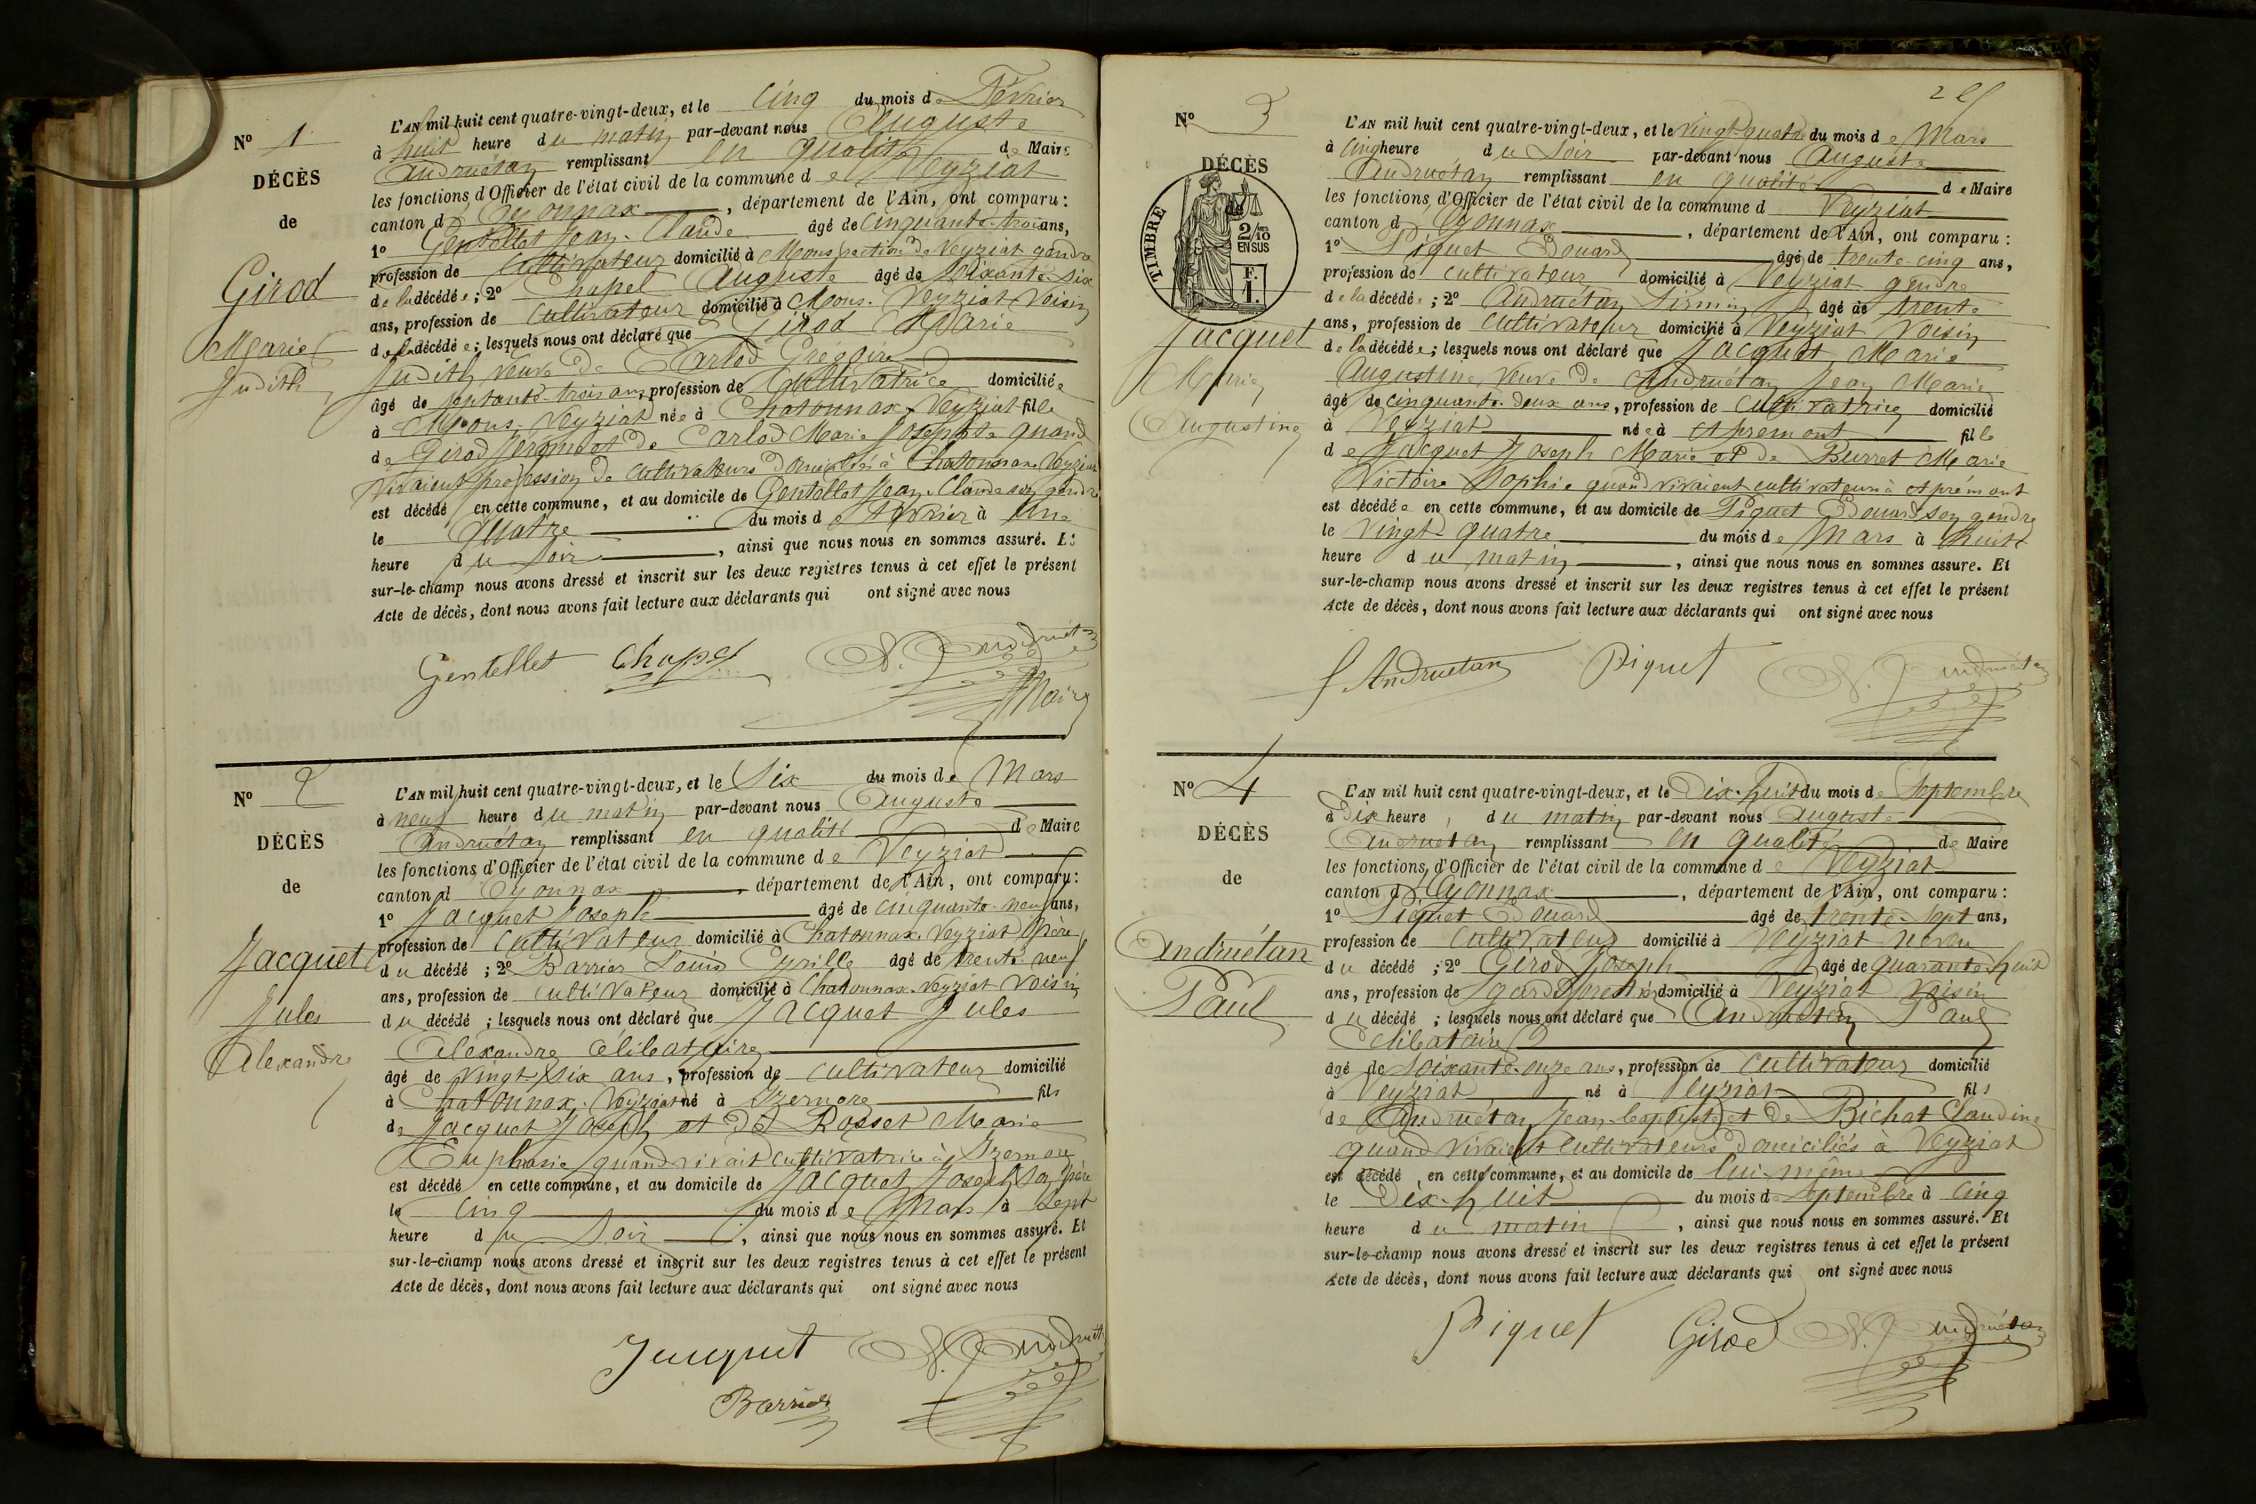 N° 1
DÉCÈS
de
Girod
Marie
Judith
L'AN mil huit cent quatre-vingt-deux, et le Cinq du mois de Février
à huit heure du matin par-devant nous Auguste
Andruétan remplissant en qualité de Maire
les fonctions d'Officier de l'état civil de la commune de Veyziat
canton d'Oyonnax, département de l'Ain, ont comparu :
1° Gentellet Jean-Claude âgé de Cinquante-trois ans,
profession de cultivateur domicilié à Mons Veyziat gendre
de la décédée ; 2° Chapel Auguste âgé de soixante-six
ans, profession de cultivateur domicilié à Mons. Veyziat Voisin
de la décédée ; lesquels nous ont déclaré que Girod Marie
Judith veuve de Carlod Grégoire
âgé de septante-trois ans, profession de Cultivatrice domiciliée
à Mons. Veyziat née à Chatonnax. Veyziat fille
de Girod et de Carlod Marie Josephte quand
vivaient profession de cultivateurs domiciliés à Chatonnax Veyziat
est décédé en cette commune, et au domicile de Gentellet Jean-Claude son gendre
le quatre du mois de Février à Une
heure du Soir, ainsi que nous nous en sommes assuré. Et
sur-le-champ nous avons dressé et inscrit sur les deux registres tenus à cet effet le présent
Acte de décès, dont nous avons fait lecture aux déclarants qui ont signé avec nous
Gentellet Chapel A. Andruétan
Maire
N° 2
DÉCÈS
de
Jacquet
Jules
Alexandre
L'AN mil huit cent quatre-vingt-deux, et le Six du mois de Mars
à neuf heure du matin par-devant nous Auguste
Andruétan remplissant en qualité de Maire
les fonctions d'Officier de l'état civil de la commune de Veyziat
canton d Oyonnax, département de l'Ain, ont comparu :
1° Jacquet Joseph âgé de cinquante-neuf ans,
profession de Cultivateur domicilié à Chatonnax. Veyziat Père
du décédé ; 2° Barrier Louis Cyrille âgé de trente neuf
ans, profession de cultivateur domicilié à Chatonnax. Veyziat Voisin
du décédé ; lesquels nous ont déclaré que Jacquet Jules
Alexandre célibataire
âgé de Vingt-Six ans, profession de cultivateur domicilié
à Chatonnax. Veyziat né à Izernore fils
de Jacquet Joseph et de Rosset Marie
Euphasie quand vivait cultivatrice à Izernore
est décédé en cette commune, et au domicile de Jacquet Joseph son père
le Cinq du mois de Mars à Sept
heure du Soir, ainsi que nous nous en sommes assuré. Et
sur-le-champ nous avons dressé et inscrit sur les deux registres tenus à cet effet le présent
Acte de décès, dont nous avons fait lecture aux déclarants qui ont signé avec nous
Jacquet A. Andruétan
Barrier
N° 3
DÉCÈS
de
TIMBRE
2/10
EN SUS
F.
1.
Jacquet
Marie
Augustine
L'AN mil huit cent quatre-vingt-deux, et le vingt-quatre du mois de Mars
à Cinq heure du Soir par-devant nous Auguste
Andruétan remplissant en qualité de Maire
les fonctions d'Officier de l'état civil de la commune d Veyziat
canton d Oyonnax, département de l'Ain, ont comparu :
1° Piquet Edouard âgé de trente-cinq ans,
profession de cultivateur domicilié à Veyziat gendre
de la décédée ; 2° Andruétan Firmin âgé de trente
ans, profession de cultivateur domicilié à Veyziat Voisin
de la décédée ; lesquels nous ont déclaré que Jacquet Marie
Augustine, Veuve de Andruétan Jean Marie
âgé de cinquante-deux ans, profession de Cultivatrice domicilié
à Veyziat née à Apremont fille
de Jacquet Joseph Marie et de Burret Marie
Victoire Sophie quand vivaient cultivateurs à Aprémont
est décédée en cette commune, et au domicile de Piquet Edouard son gendre
le vingt-quatre du mois de Mars à huit
heure du matin, ainsi que nous nous en sommes assuré. Et
sur-le-champ nous avons dressé et inscrit sur les deux registres tenus à cet effet le présent
Acte de décès, dont nous avons fait lecture aux déclarants qui ont signé avec nous
f. Andruetan Piquet A. Andruétan
N° 4
DÉCÈS
de
Andruétan
Paul
L'AN mil huit cent quatre-vingt-deux, et le Dix-huit du mois de Septembre
à Dix heure du matin par-devant nous Auguste
Andruétan remplissant en qualité de Maire
les fonctions d'Officier de l'état civil de la commune de Veyziat
canton d'Oyonnax, département de l'Ain, ont comparu :
1° Piquet Edouard âgé de trente-sept ans,
profession de cultivateur domicilié à Veyziat neveu
du décédé ; 2° Girod Joseph âgé de quarante-huit
ans, profession de garde domicilié à Veyziat voisin
du décédé ; lesquels nous ont déclaré que Andruétan Paul
Célibataire
âgé de soixante-onze ans, profession de cultivateur domicilié
à Veyziat né à Veyziat fils
de Andruétan Jean-baptiste et de Bichat Claudine
quand vivaient cultivateurs domiciliés à Veyziat
est décédé en cette commune, et au domicile de lui-même
le Dix-huit du mois de Septembre à Cinq
heure du matin, ainsi que nous nous en sommes assuré. Et
sur-le-champ nous avons dressé et inscrit sur les deux registres tenus à cet effet le présent
Acte de décès, dont nous avons fait lecture aux déclarants qui ont signé avec nous
Piquet Girod A. Andruétan